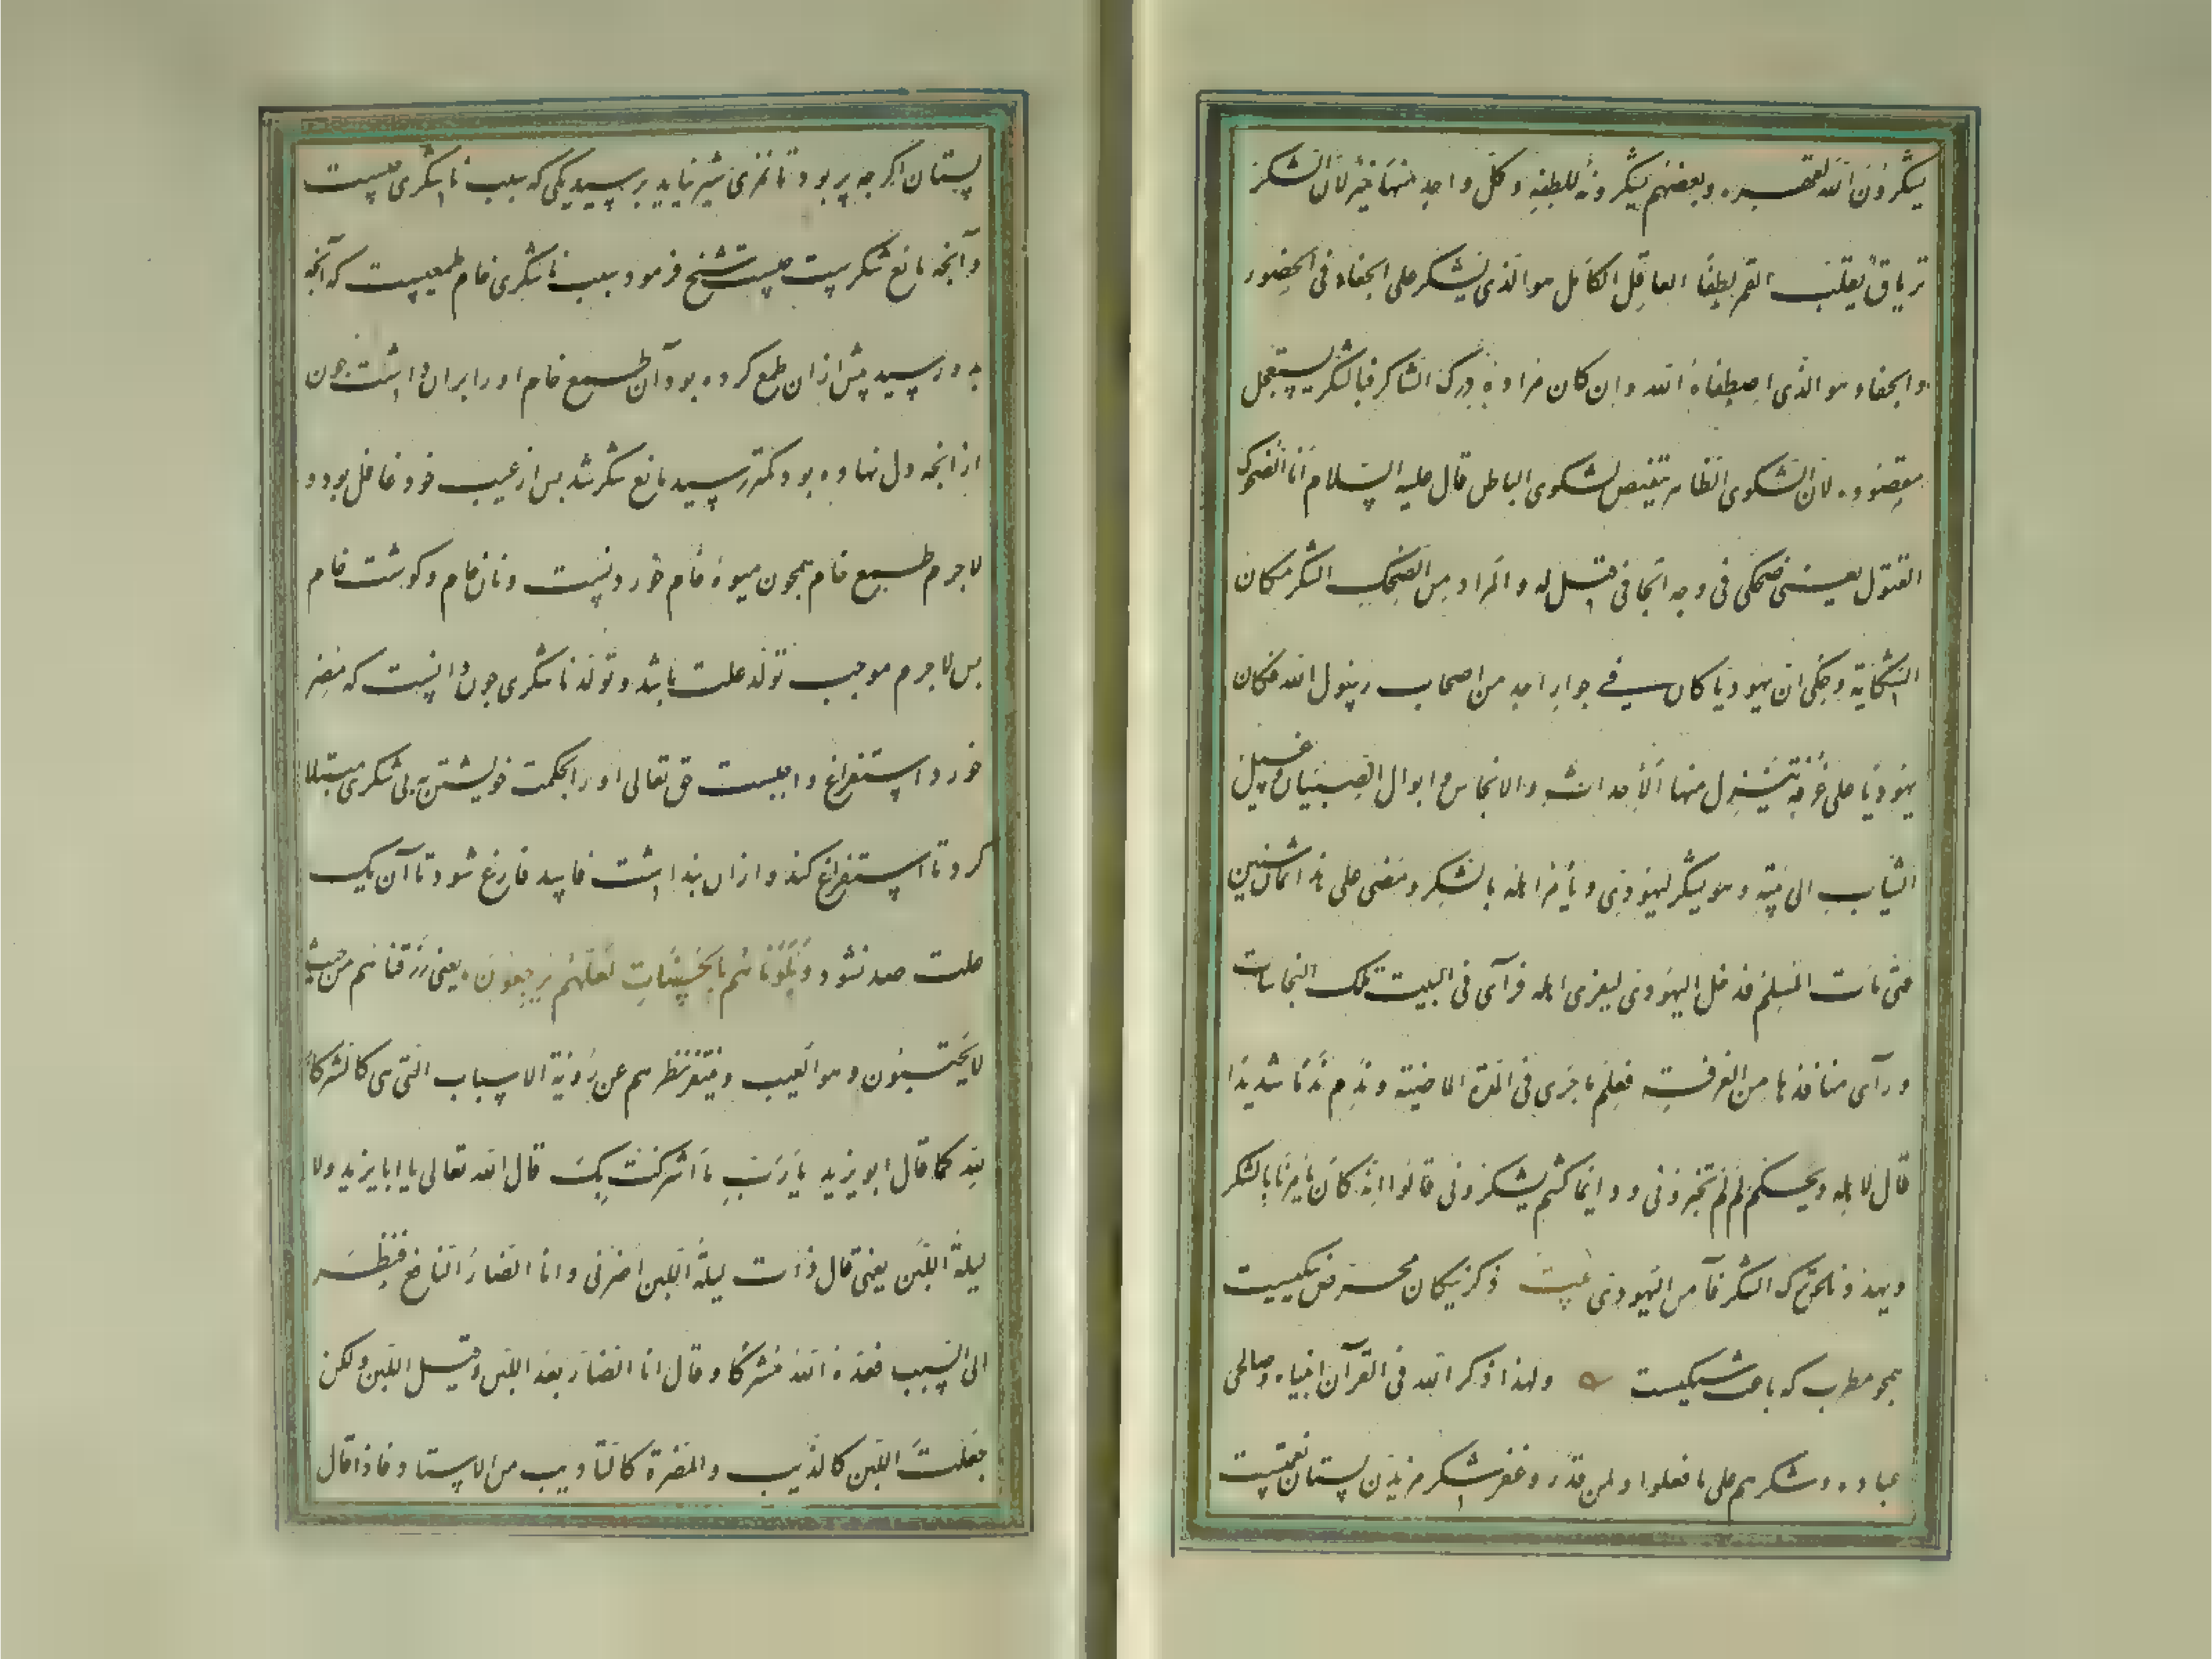 یشکرون الله لقهره وبعضهم یشکرونه للطفه وکل واحد منهما خیر لان الشکر
تریاق یقلب القهر لطفا العاقل الکامل هو الذی یشکر علی الجفاء فی الحضور
والخفاء هو الذی اصطفاه الله وان کان مراده درک الشاکر فبالشکر یستعجل
مقصوده لان الشکوی الظاهر تنقیص لشکوی الباطن قال علیه السلام انا الضحوک
القتول یعنی ضحکی فی وجه الجافی قتل له والمراد من الضحک الشکر مکان
الشکایة وحکی ان یهودیا کان فی جوار احد من اصحاب رسول الله فکان
یهودیا علی غرفة تنزل منها الاحداث والانجاس وابوال الصبیان وغسیل
الثیاب الی بیته وهو یشکر الیهودی ویأمر اهله بالشکر ومضی علی هذا ثمان سنین
حتی مات المسلم فدخل الیهودی لیعزی اهله فرآی فی البیت تلک النجاسات
ورآی منافذها من الغرفة فعلم ما جری فی المدة الماضیة وندم ندما شدیدا
قال لاهله ویحکم لم لم تخبرونی ودایما کنتم تشکرونی قالوا انه کان یأمرنا بالشکر
ویهددنا عن ترک الشکر فآمن الیهودی بیت ذکر نیکان محرض نیکیست
همچو مطرب که باعث سیکیست ولهذا ذکر الله فی القرآن انبیاءه وصالحی
عباده وشکرهم علی ما فعلوا ولمن قدر وغفر شکر مزیدن پستان نعمتست
پستان اکرچه پر بود تا نمزی شیر نیاید پرسید یکی که سبب ناشکری چیست
وآنچه مانع شکرست چیست شیخ فرمود سبب ناشکری خام طمعیست که آنچه
بدو رسید بیش ازان طمع کرده بود آن طمع خام او را بران داشت چون
از انچه دل نهاده بود کمتر رسید مانع شکر شد پس از عیب خود غافل بود و
لاجرم طمع خام همچون میوۀ خام خوردنست ونان خام وکوشت خام
پس لاجرم موجب تولد علت باشد وتولد ناشکری چون دانست که مضر
خورد استفراغ واجبست حق تعالی او را بحکمت خویشتن به بی شکری مبتلا
کرد تا استفراغ کند وازان پنداشت فاسد فارغ شود تا آن یک
علت صد نشود وبلوناهم بالحسنات لعلهم یرجعون یعنی رزقناهم من حیث
لا یحتسبون وهو الغیب ویتنفر نظرهم عن رؤیة الاسباب التی هی کالشرکاء
لله کما قال ابو یزید یا رب ما اشرکت بک قال الله تعالی یا ابا یزید ولا
لیلة اللبن یعنی قال ذات لیلة اللبن اضرنی وانا الضار النافع فنظر
الی السبب فعده الله مشرکا وقال انا الضار بعد اللبن وقبل اللبن ولکن
جعلت اللبن کالذنب والمضرة کالتأدیب من الاستاد فاذا قال